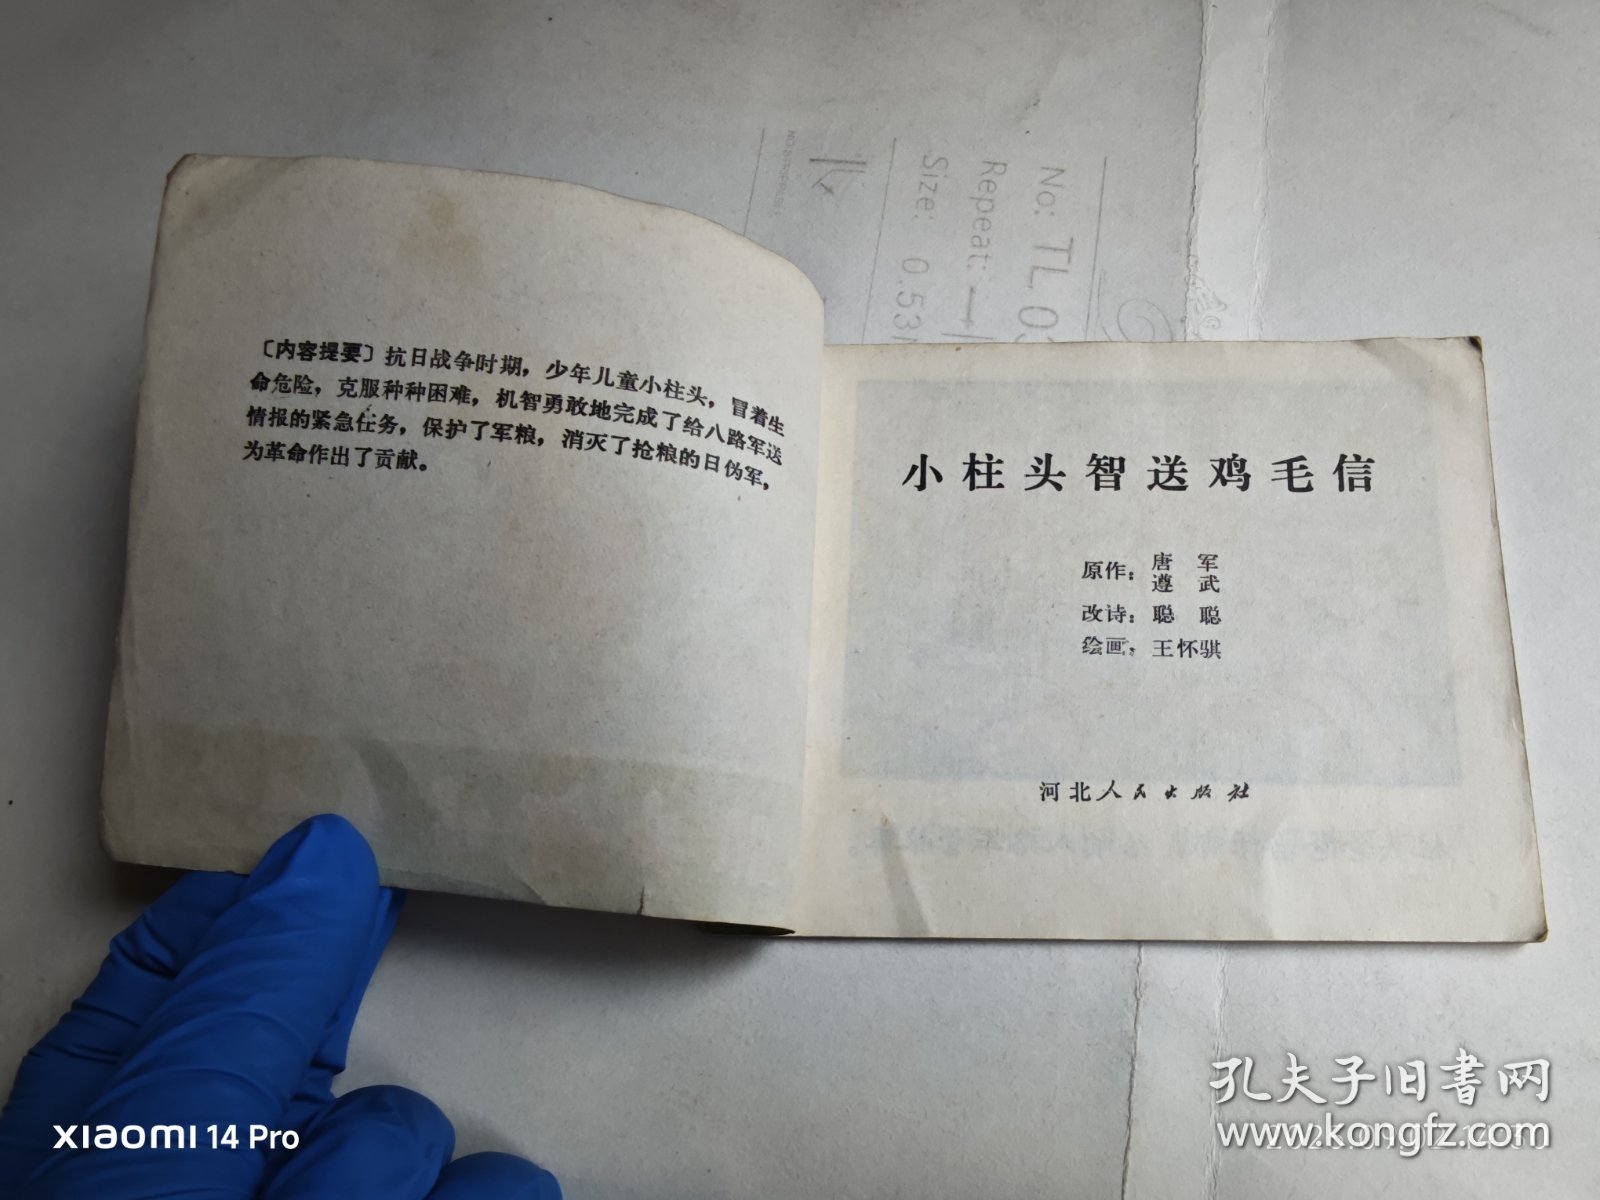 〔内容提要〕抗日战争时期，少年儿童小柱头，冒着生
命危险，克服种种困难，机智勇敢地完成了给八路军送
情报的紧急任务，保护了军粮，消灭了抢粮的日伪军，
为革命作出了贡献。
小柱头智送鸡毛信
原作：唐军
遵武
改诗：聪聪
绘画：王怀骐
河北人民出版社
No: TL0
Repeat:
Size: 0.53
xiaomi 14 Pro
孔夫子旧书网
www.kongfz.com